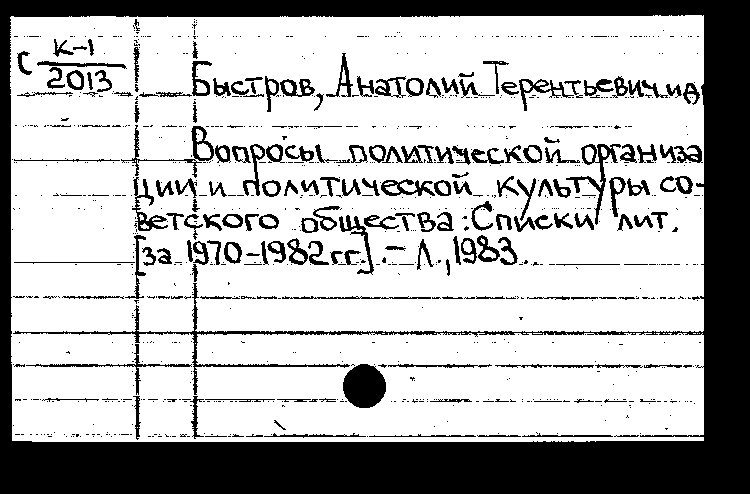 С К-1
2013
Быстров, Анатолий Терентьевич и др
Вопросы политической организа
ции и политической культуры со-
ветского общества: Списки лит.
[за 1970-1982 гг.]. - Л., 1983.